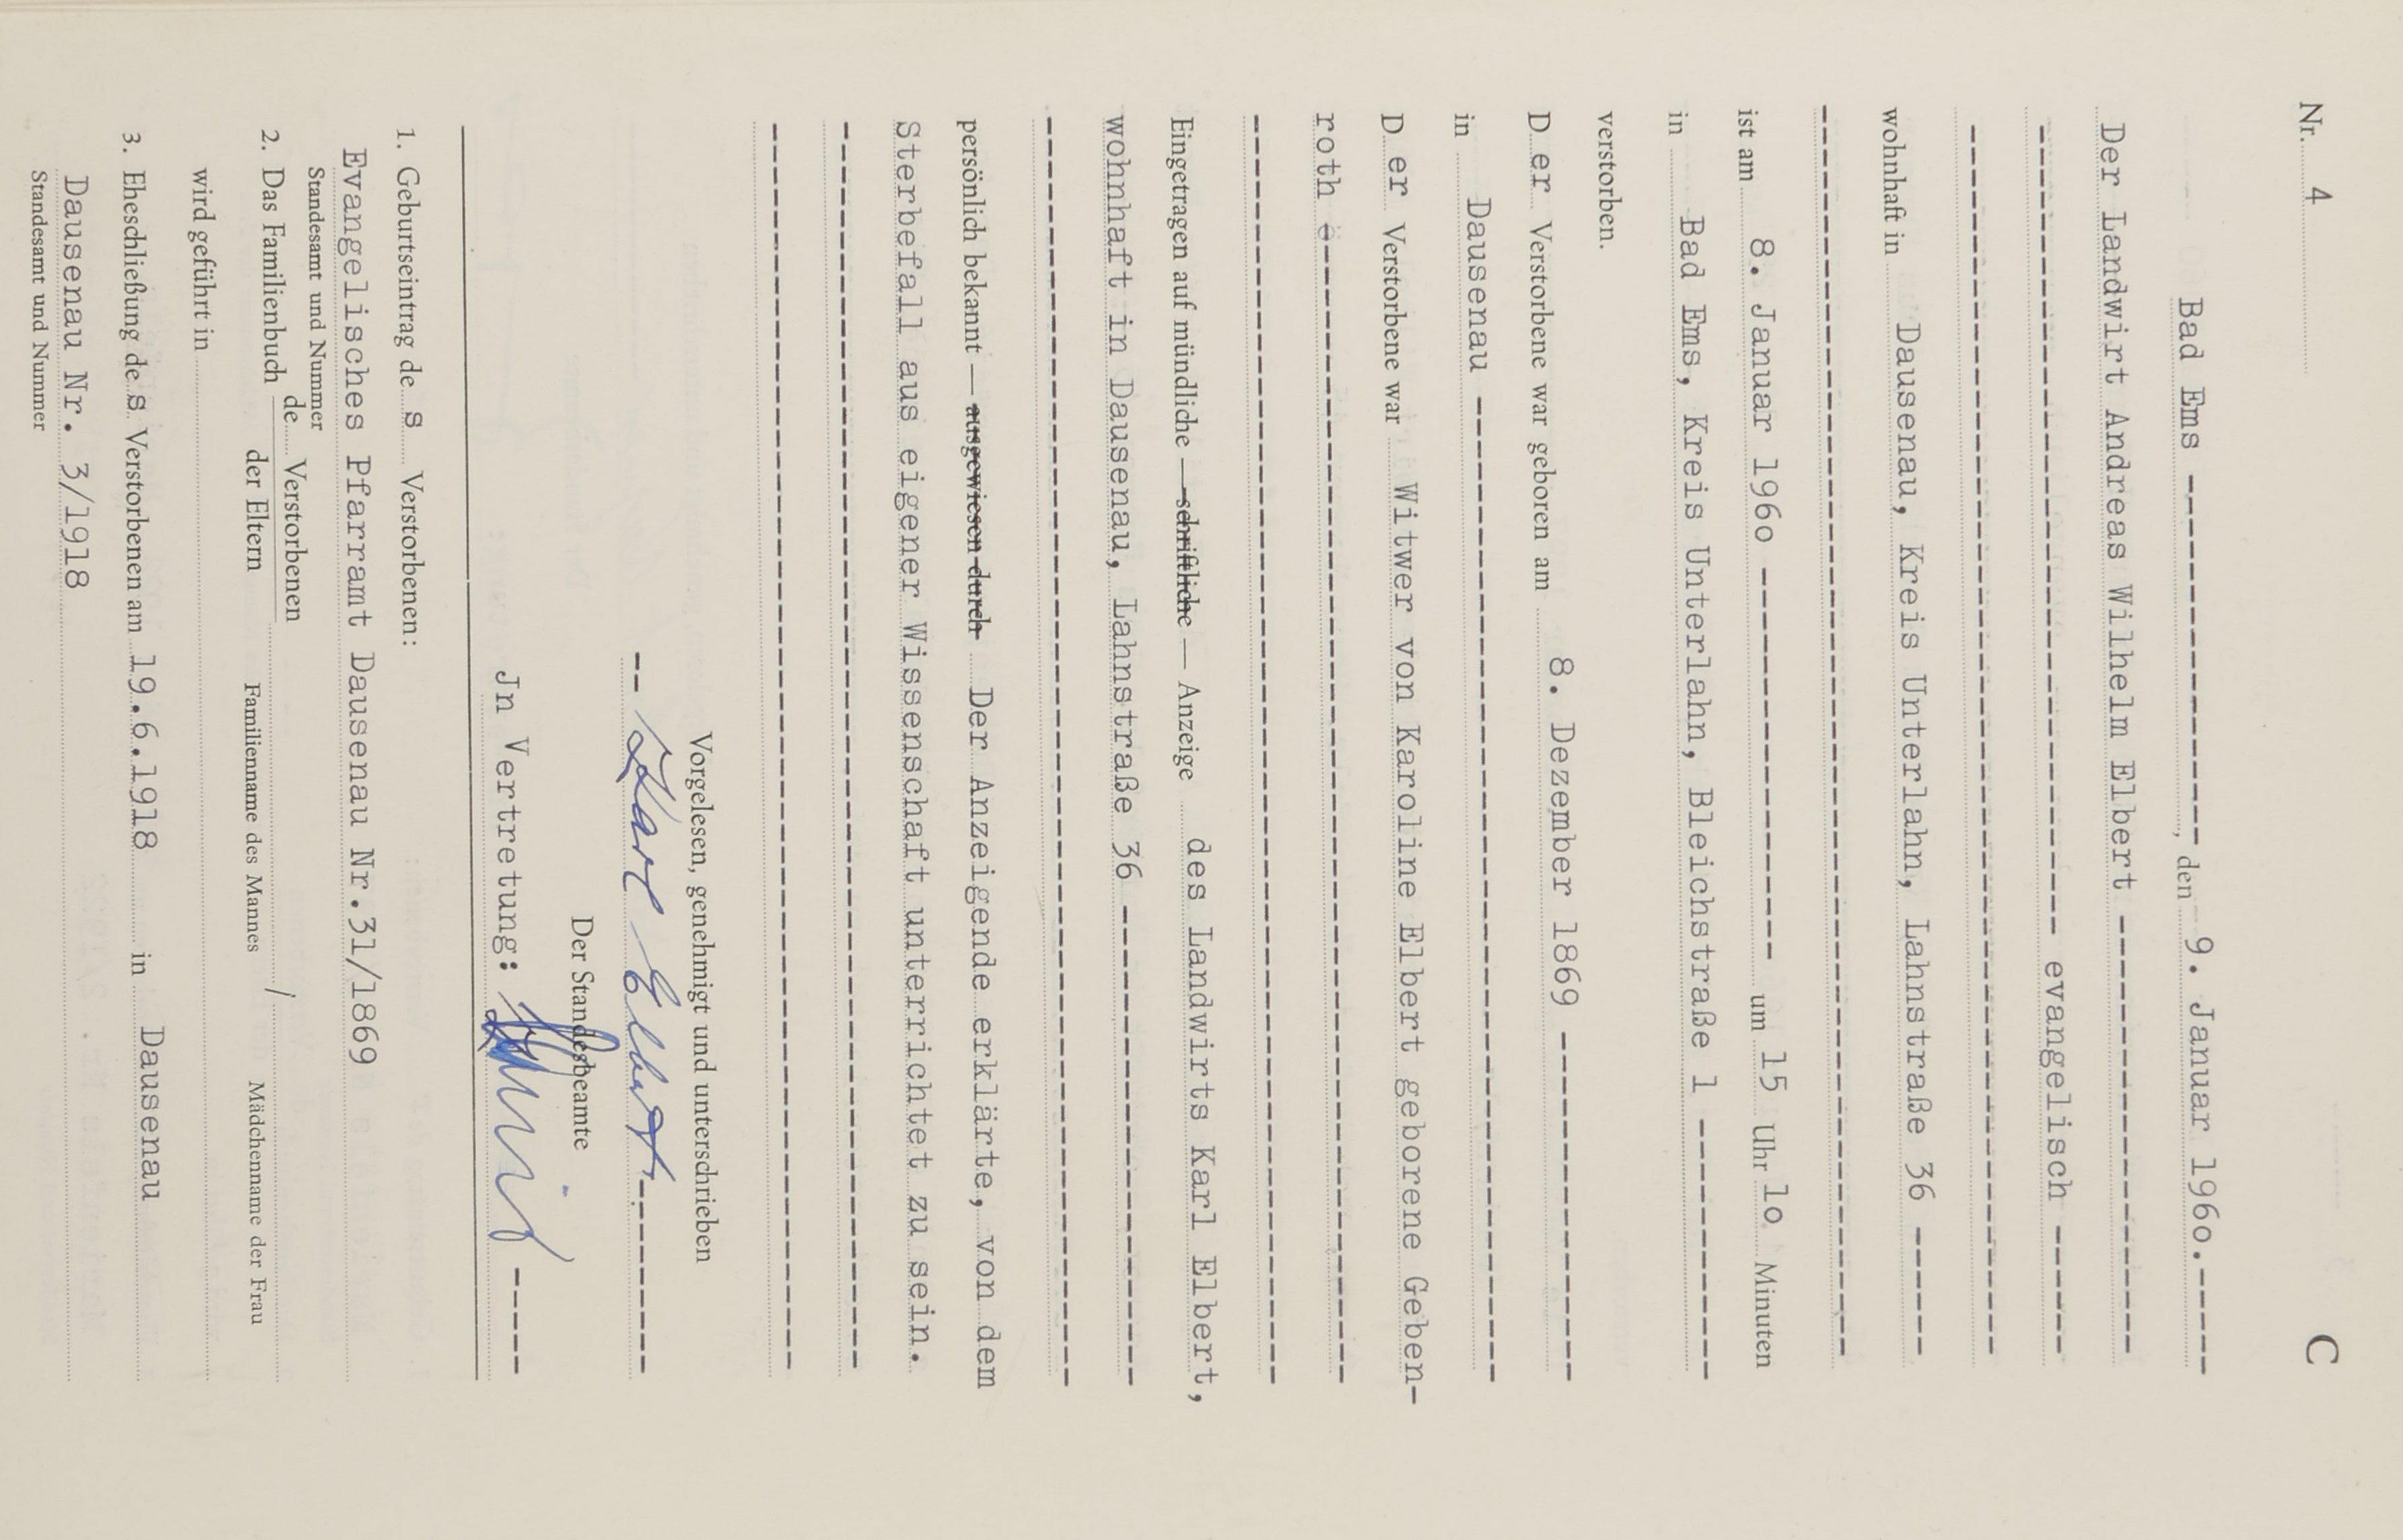 Nr. 4 C
Bad Ems ----------------, den 9. Januar 196o.-----
Der Landwirt Andreas Wilhelm Elbert --------------------
------------------------------------ evangelisch ------
------------------------------------------------------
wohnhaft in Dausenau, Kreis Unterlahn, Lahnstraße 36 ------
------------------------------------------------------
ist am 8. Januar 196o ----------------- um 15 Uhr 1o Minuten
in Bad Ems, Kreis Unterlahn, Bleichstraße 1 -----------
verstorben.
D er Verstorbene war geboren am 8. Dezember 1869 ---------------
in Dausenau ------------------------------------------
D er Verstorbene war Witwer von Karoline Elbert geborene Geben-
roth e------------------------------------------------
------------------------------------------------------
Eingetragen auf mündliche — schriftliche — Anzeige des Landwirts Karl Elbert,
wohnhaft in Dausenau, Lahnstraße 36 ---------------------
------------------------------------------------------
persönlich bekannt — ausgewiesen durch Der Anzeigende erklärte, von dem
Sterbefall aus eigener Wissenschaft unterrichtet zu sein.
------------------------------------------------------
------------------------------------------------------
Vorgelesen, genehmigt und unterschrieben
-- Karl Elbert ---------
Der Standesbeamte
Jn Vertretung: -----
1. Geburtseintrag de s Verstorbenen:
Evangelisches Pfarramt Dausenau Nr.31/1869
Standesamt und Nummer
2. Das Familienbuch de Verstorbenen
der Eltern /
Familienname des Mannes Mädchenname der Frau
wird geführt in
3. Eheschließung de s Verstorbenen am 19.6.1918 in Dausenau
Dausenau Nr. 3/1918
Standesamt und Nummer